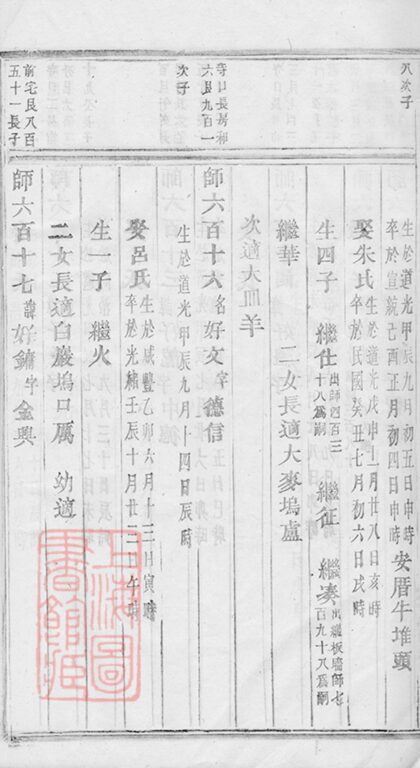 八次子
生於道光甲辰九月初五日申時
卒於宣統己酉正月初四日申時
安厝牛堆頭
娶朱氏
生於道光戊申十二月廿八日亥時
卒於民國癸丑七月初六日戌時
生四子
繼仕
出師四百三
十八爲嗣
繼征
繼奏
出繼板橋師七
百九十八爲嗣
繼華
二女長適大麥塢盧
次適大皿羊
寺口長房和
六艮九百一
次子
師六百十六名好文字德信
生於道光甲辰九月十四日辰時
娶呂氏
生於咸豐乙卯六月十三日寅時
卒於光緒壬辰十月廿二日午時
生一子
繼火
二女長適白巖塢口厲
幼適
前宅艮八百
五十一長子
師六百十七諱好鏞字金興
上海圖
書館藏